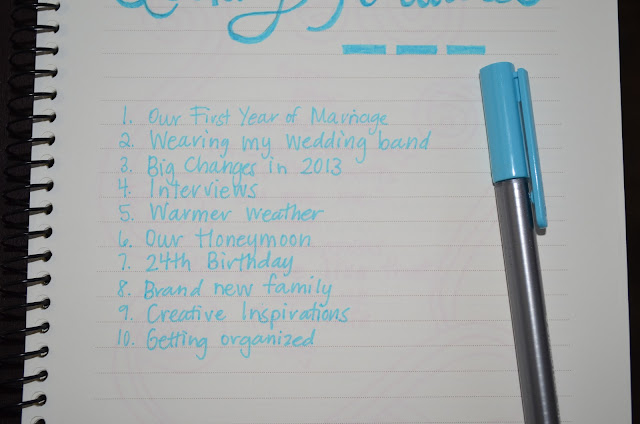 1. Our First Year of Marriage
2. Wearing my wedding band
3. Big Changes in 2013
4. Interviews
5. Warmer weather
6. Our Honeymoon
7. 24th Birthday
8. Brand new family
9. Creative Inspirations
10. Getting organized